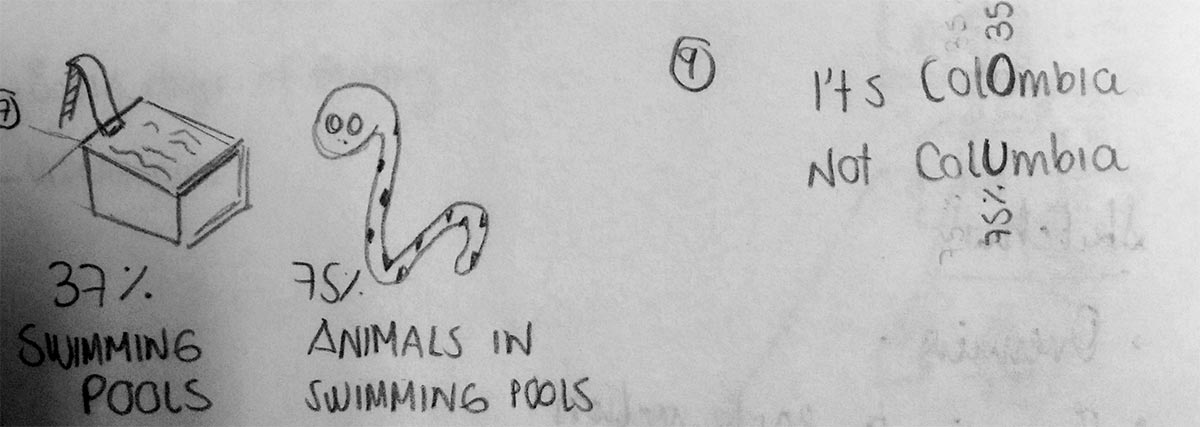 7
37%
SWIMMING
POOLS
75%
ANIMALS IN
SWIMMING POOLS
9
35
I'ts ColOmbia
Not ColUmbia
75%